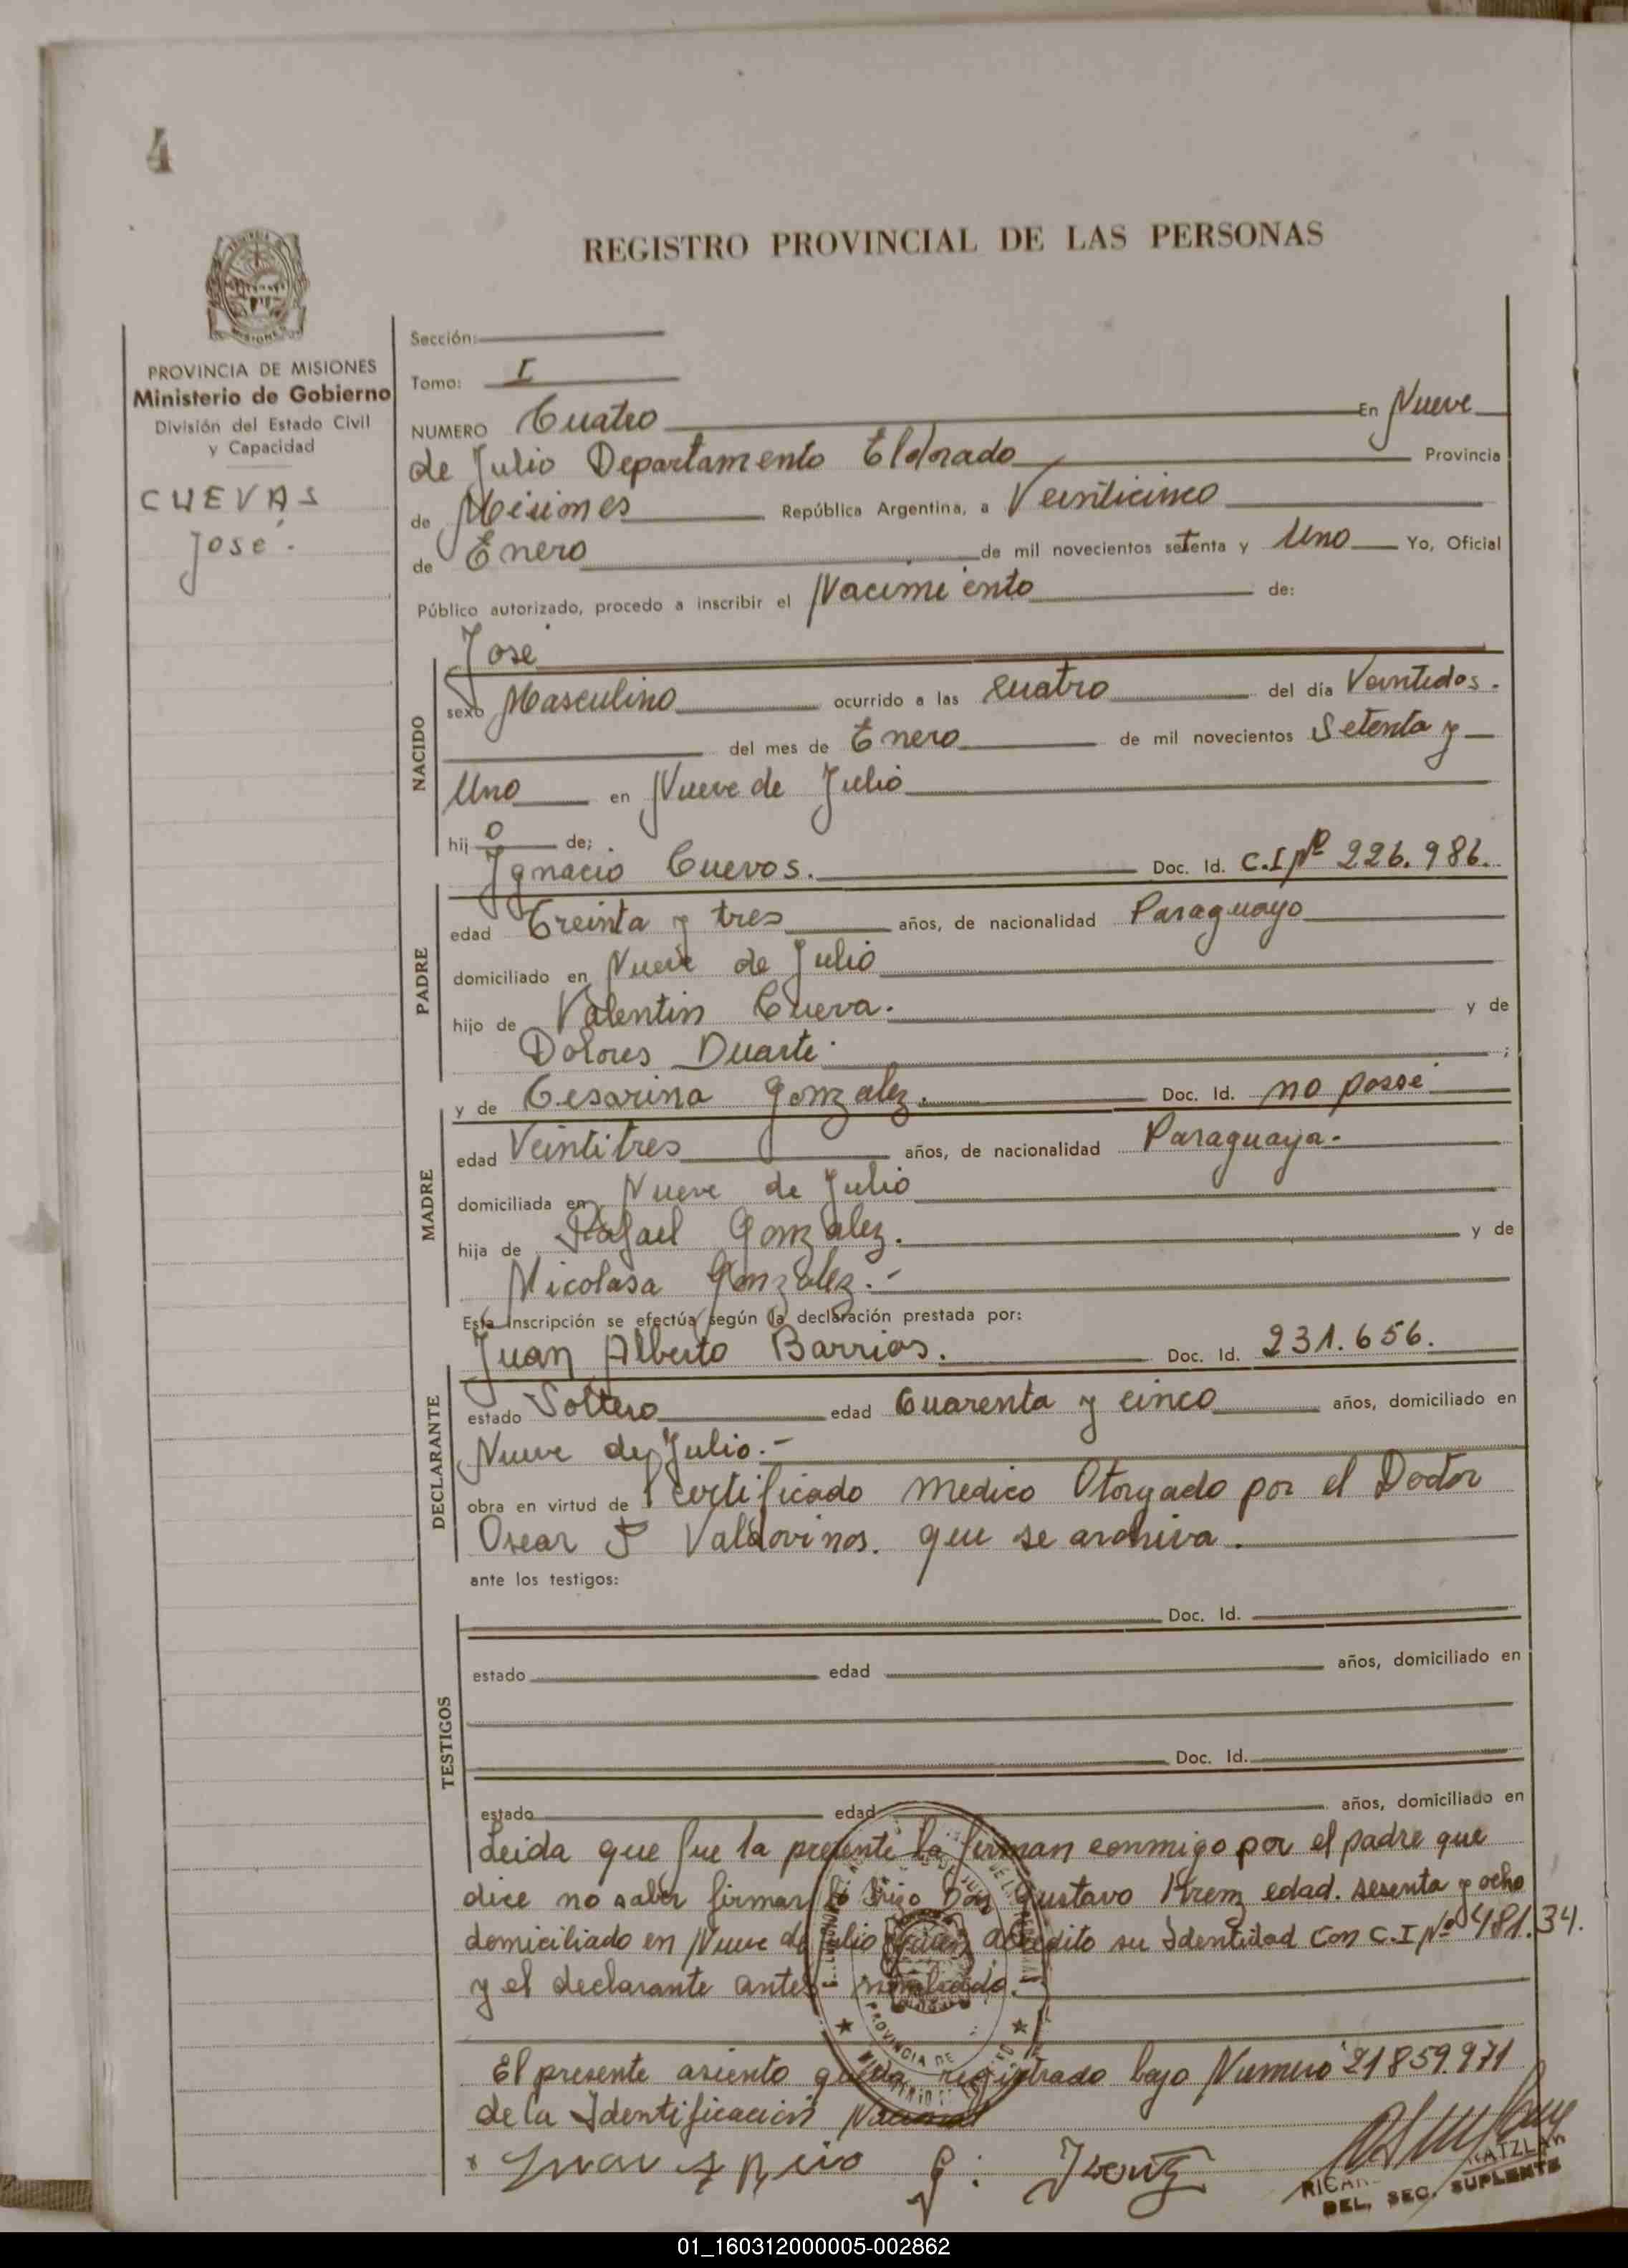 4
REGISTRO PROVINCIAL DE LAS PERSONAS
PROVINCIA DE MISIONES
Ministerio de Gobierno
División del Estado Civil
y Capacidad
CUEVAS
José.
Sección:
Tomo: I
NUMERO Cuatro En Nueve
de Julio Departamento Eldorado Provincia
de Misiones República Argentina, a Veinticinco
de Enero de mil novecientos setenta y Uno Yo, Oficial
Público autorizado, procedo a inscribir el Nacimiento de:
José
NACIDO
sexo Masculino ocurrido a las cuatro del día Veintidos.
del mes de Enero de mil novecientos Setenta y
Uno en Nueve de Julio
hijo de;
Ignacio Cuevas. Doc. Id. C.I Nº 226.986.
PADRE
edad Treinta y tres años, de nacionalidad Paraguayo
domiciliado en Nueve de Julio
hijo de Valentin Cueva. y de
Dolores Duarte. ;
y de Cesarina Gonzalez. Doc. Id. no posse
MADRE
edad Veintitres años, de nacionalidad Paraguaya.
domiciliada en Nueve de Julio
hija de Rafael Gonzalez. y de
Nicolasa Gonzalez.-
Esta Inscripción se efectúa según la declaración prestada por:
Juan Alberto Barrios. Doc. Id. 231.656.
DECLARANTE
estado Soltero edad Cuarenta y cinco años, domiciliado en
Nueve de Julio.-
obra en virtud de certificado medico Otorgado por el Doctor
Oscar F Valdovinos. que se archiva.
ante los testigos:
TESTIGOS
Doc. Id.
estado edad años, domiciliado en
Doc. Id.
estado edad años, domiciliado en
Leida que fue la presente la firman conmigo por el padre que
dice no saber firmar lo hizo Don Gustavo edad. sesenta y ocho
domiciliado en Nueve de Julio quien acredito su Identidad Con C.I Nº 481.34.
y el declarante antes nombrado.
PROVINCIA DE
El presente asiento queda registrado bajo Numero 21859.971
de la Identificación Nacional
DEL. SEC. SUPLENTE
01_160312000005-002862